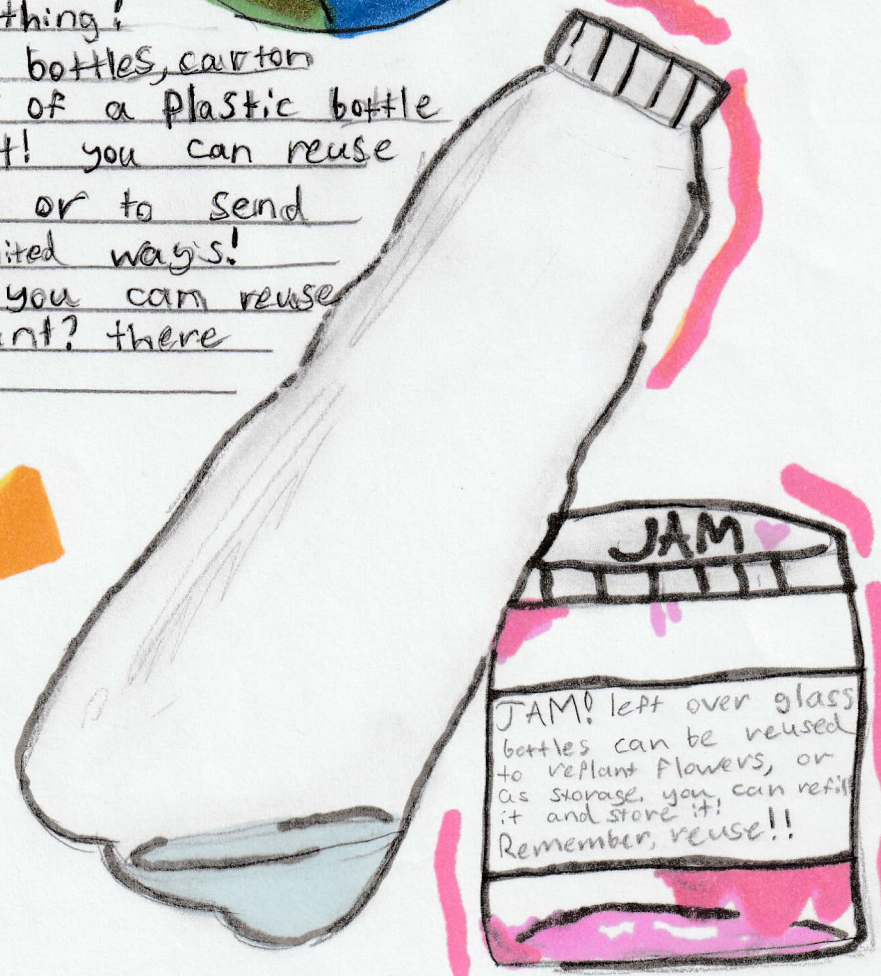 thing!
bottles, carton
of a plastic bottle
t! you can reuse
or to send
ited ways!
you can reuse
nt? there
JAM
JAM! left over glass
bottles can be reused
to replant flowers, or
as storage. you can refill
it and store it!
Remember, reuse!!